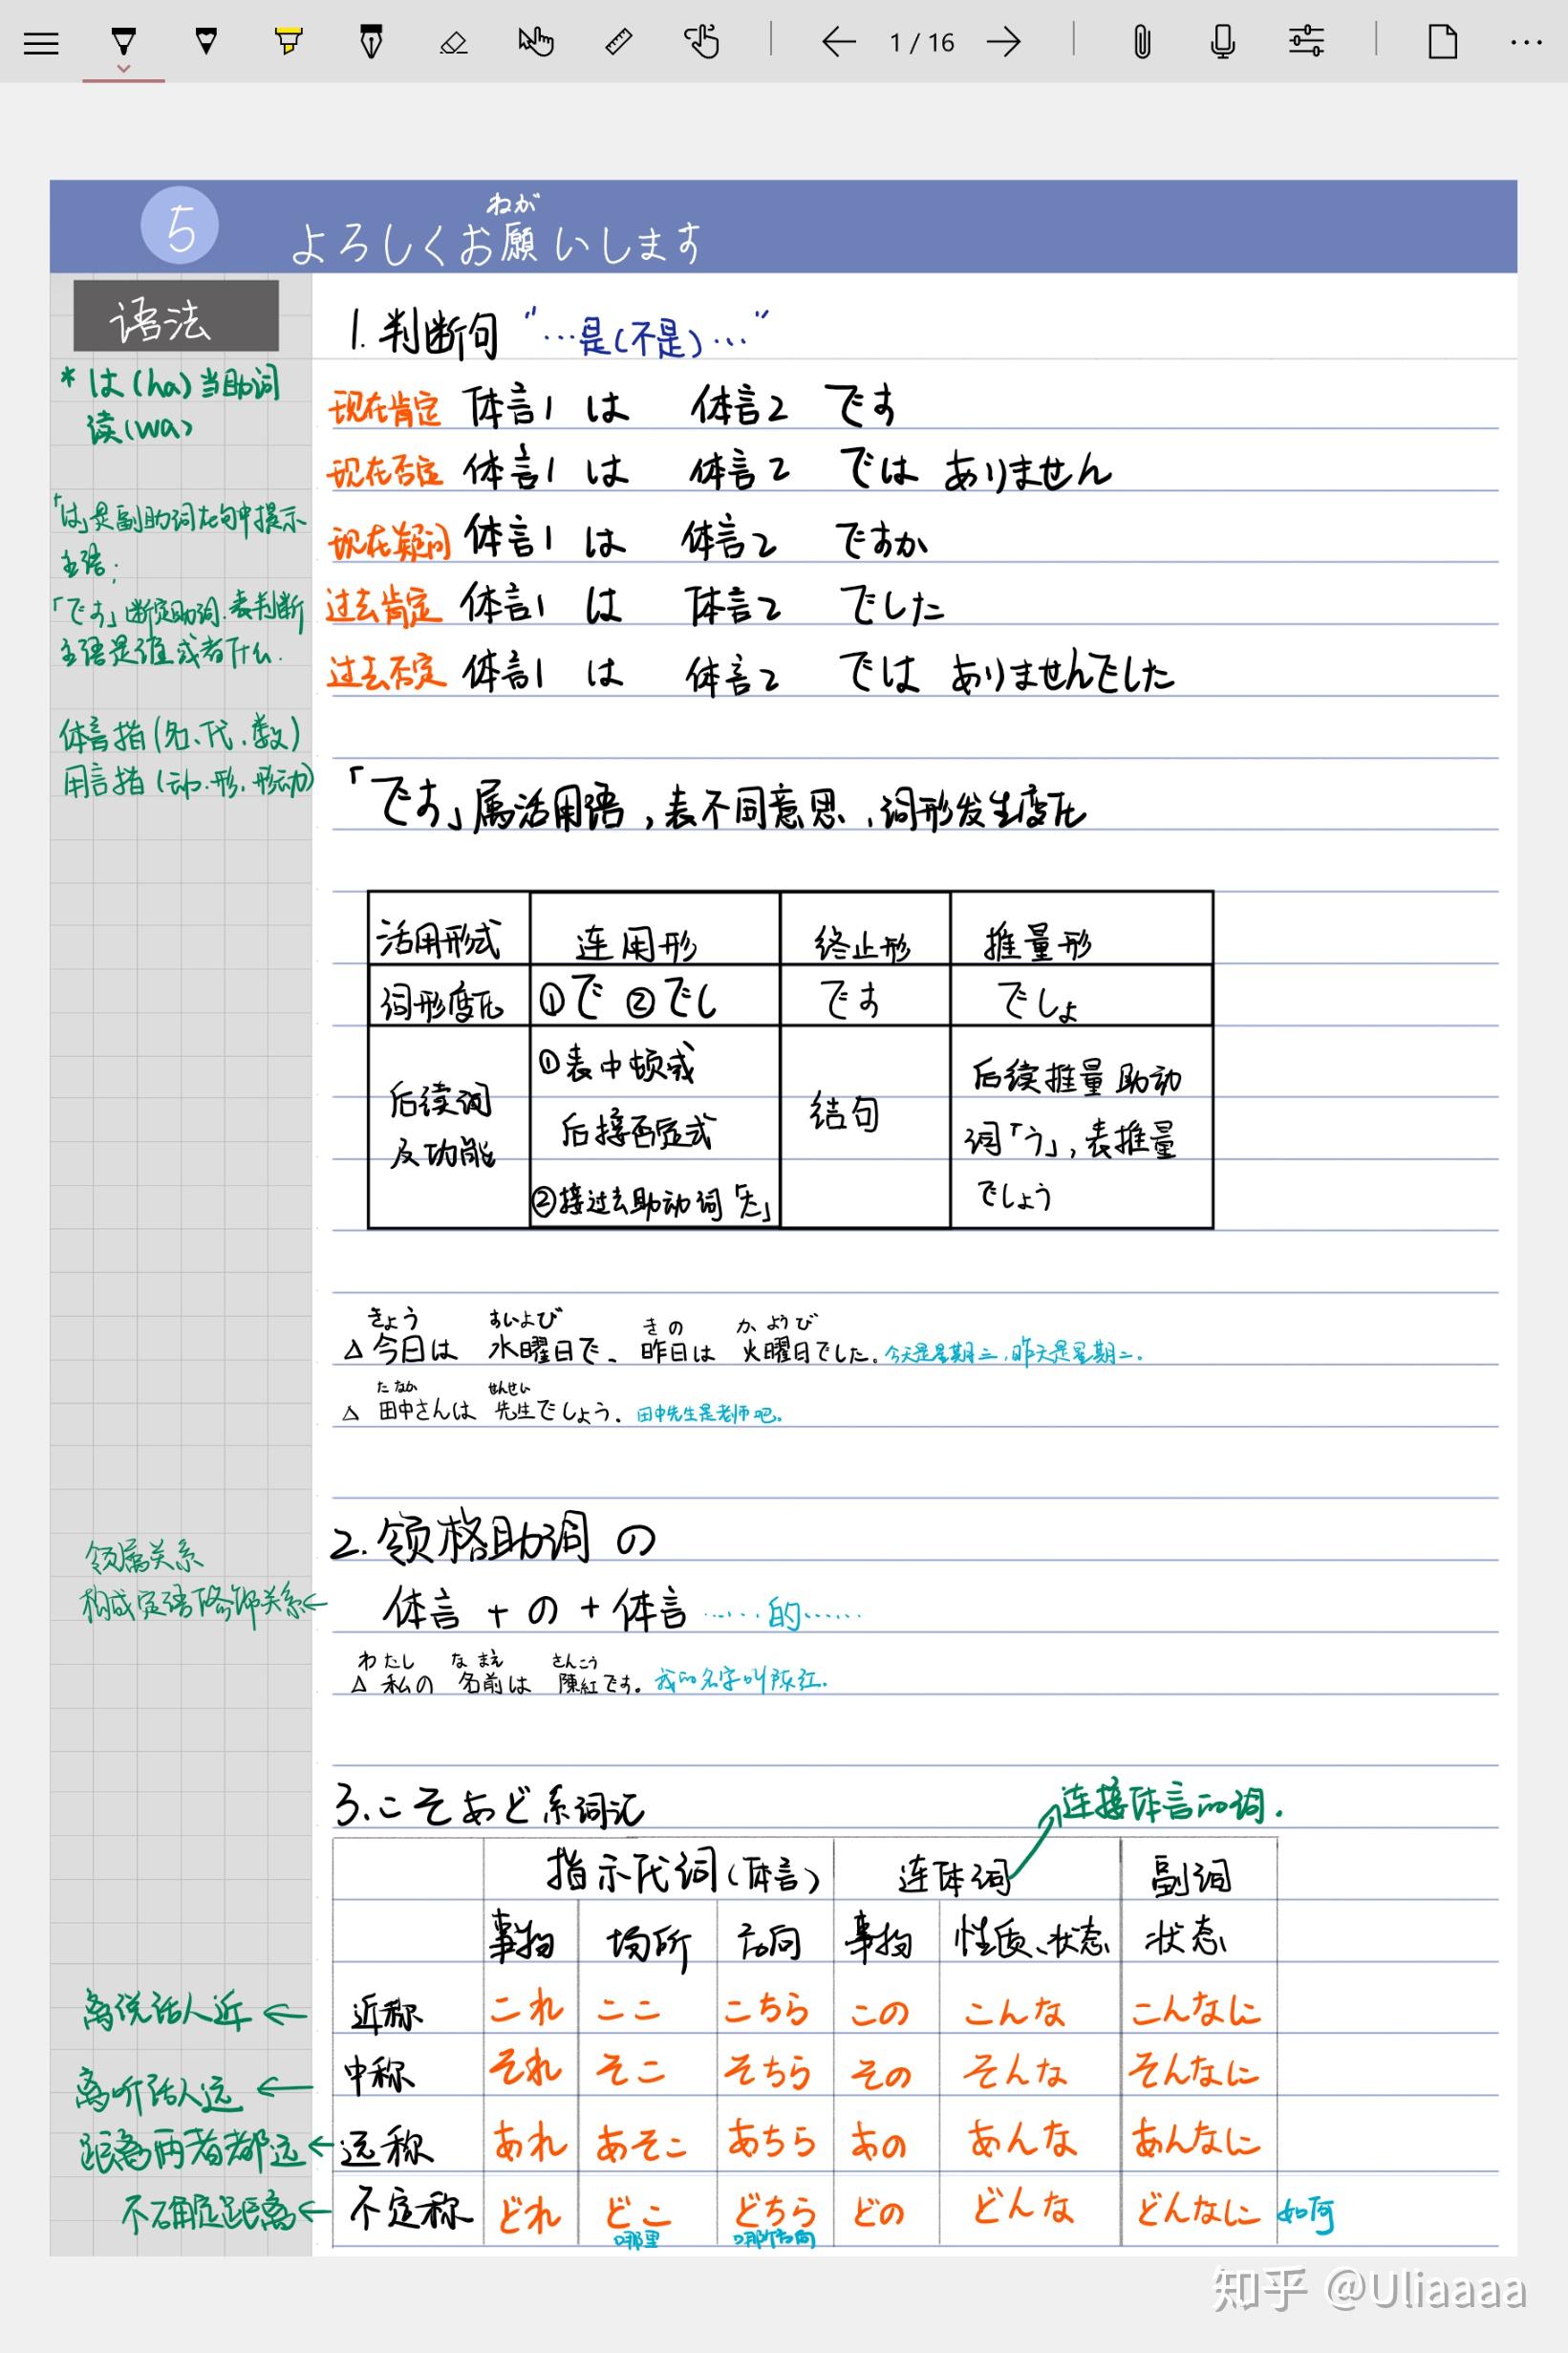 1 / 16
5
ねが
よろしくお願いします
语法
* は(ha)当助词
读(wa)
「は」是副助词在句中提示
主语;
「です」断定助词.表判断
主语是谁或者什么.
体言指(名、代、数)
用言指(动.形.形动)
1.判断句 "…是(不是)…"
现在肯定 体言1 は 体言2 です
现在否定 体言1 は 体言2 では ありません
现在疑问 体言1 は 体言2 ですか
过去肯定 体言1 は 体言2 でした
过去否定 体言1 は 体言2 では ありませんでした
「です」属活用语,表不同意思,词形发生变化
活用形式 连用形 终止形 推量形
词形变化 ①で ②でし です でしょ
后续词
及功能
①表中顿或
后接否定式
②接过去助动词「た」
结句
后续推量助动
词「う」,表推量
でしょう
きょう すいよび きの かようび
△ 今日は 水曜日で、昨日は 火曜日でした。今天是星期三,昨天是星期二.
たなか せんせい
△ 田中さんは 先生でしょう。田中先生是老师吧.
2.领格助词 の
领属关系
构成定语修饰关系←
体言 + の + 体言 ……的……
わたし なまえ さんこう
△ 私の 名前は 陳紅です。我的名字叫陈红.
3.こそあど系词汇
连接体言的词.
指示代词(体言) 连体词 副词
事物 场所 方向 事物 性质、状态 状态
离说话人近 ← 近称 これ ここ こちら この こんな こんなに
离听话人远 ← 中称 それ そこ そちら その そんな そんなに
距离两者都远 ← 远称 あれ あそこ あちら あの あんな あんなに
不确定距离 ← 不定称 どれ どこ どちら どの どんな どんなに 如何
哪里 哪个方向
知乎 @Uliaaaa